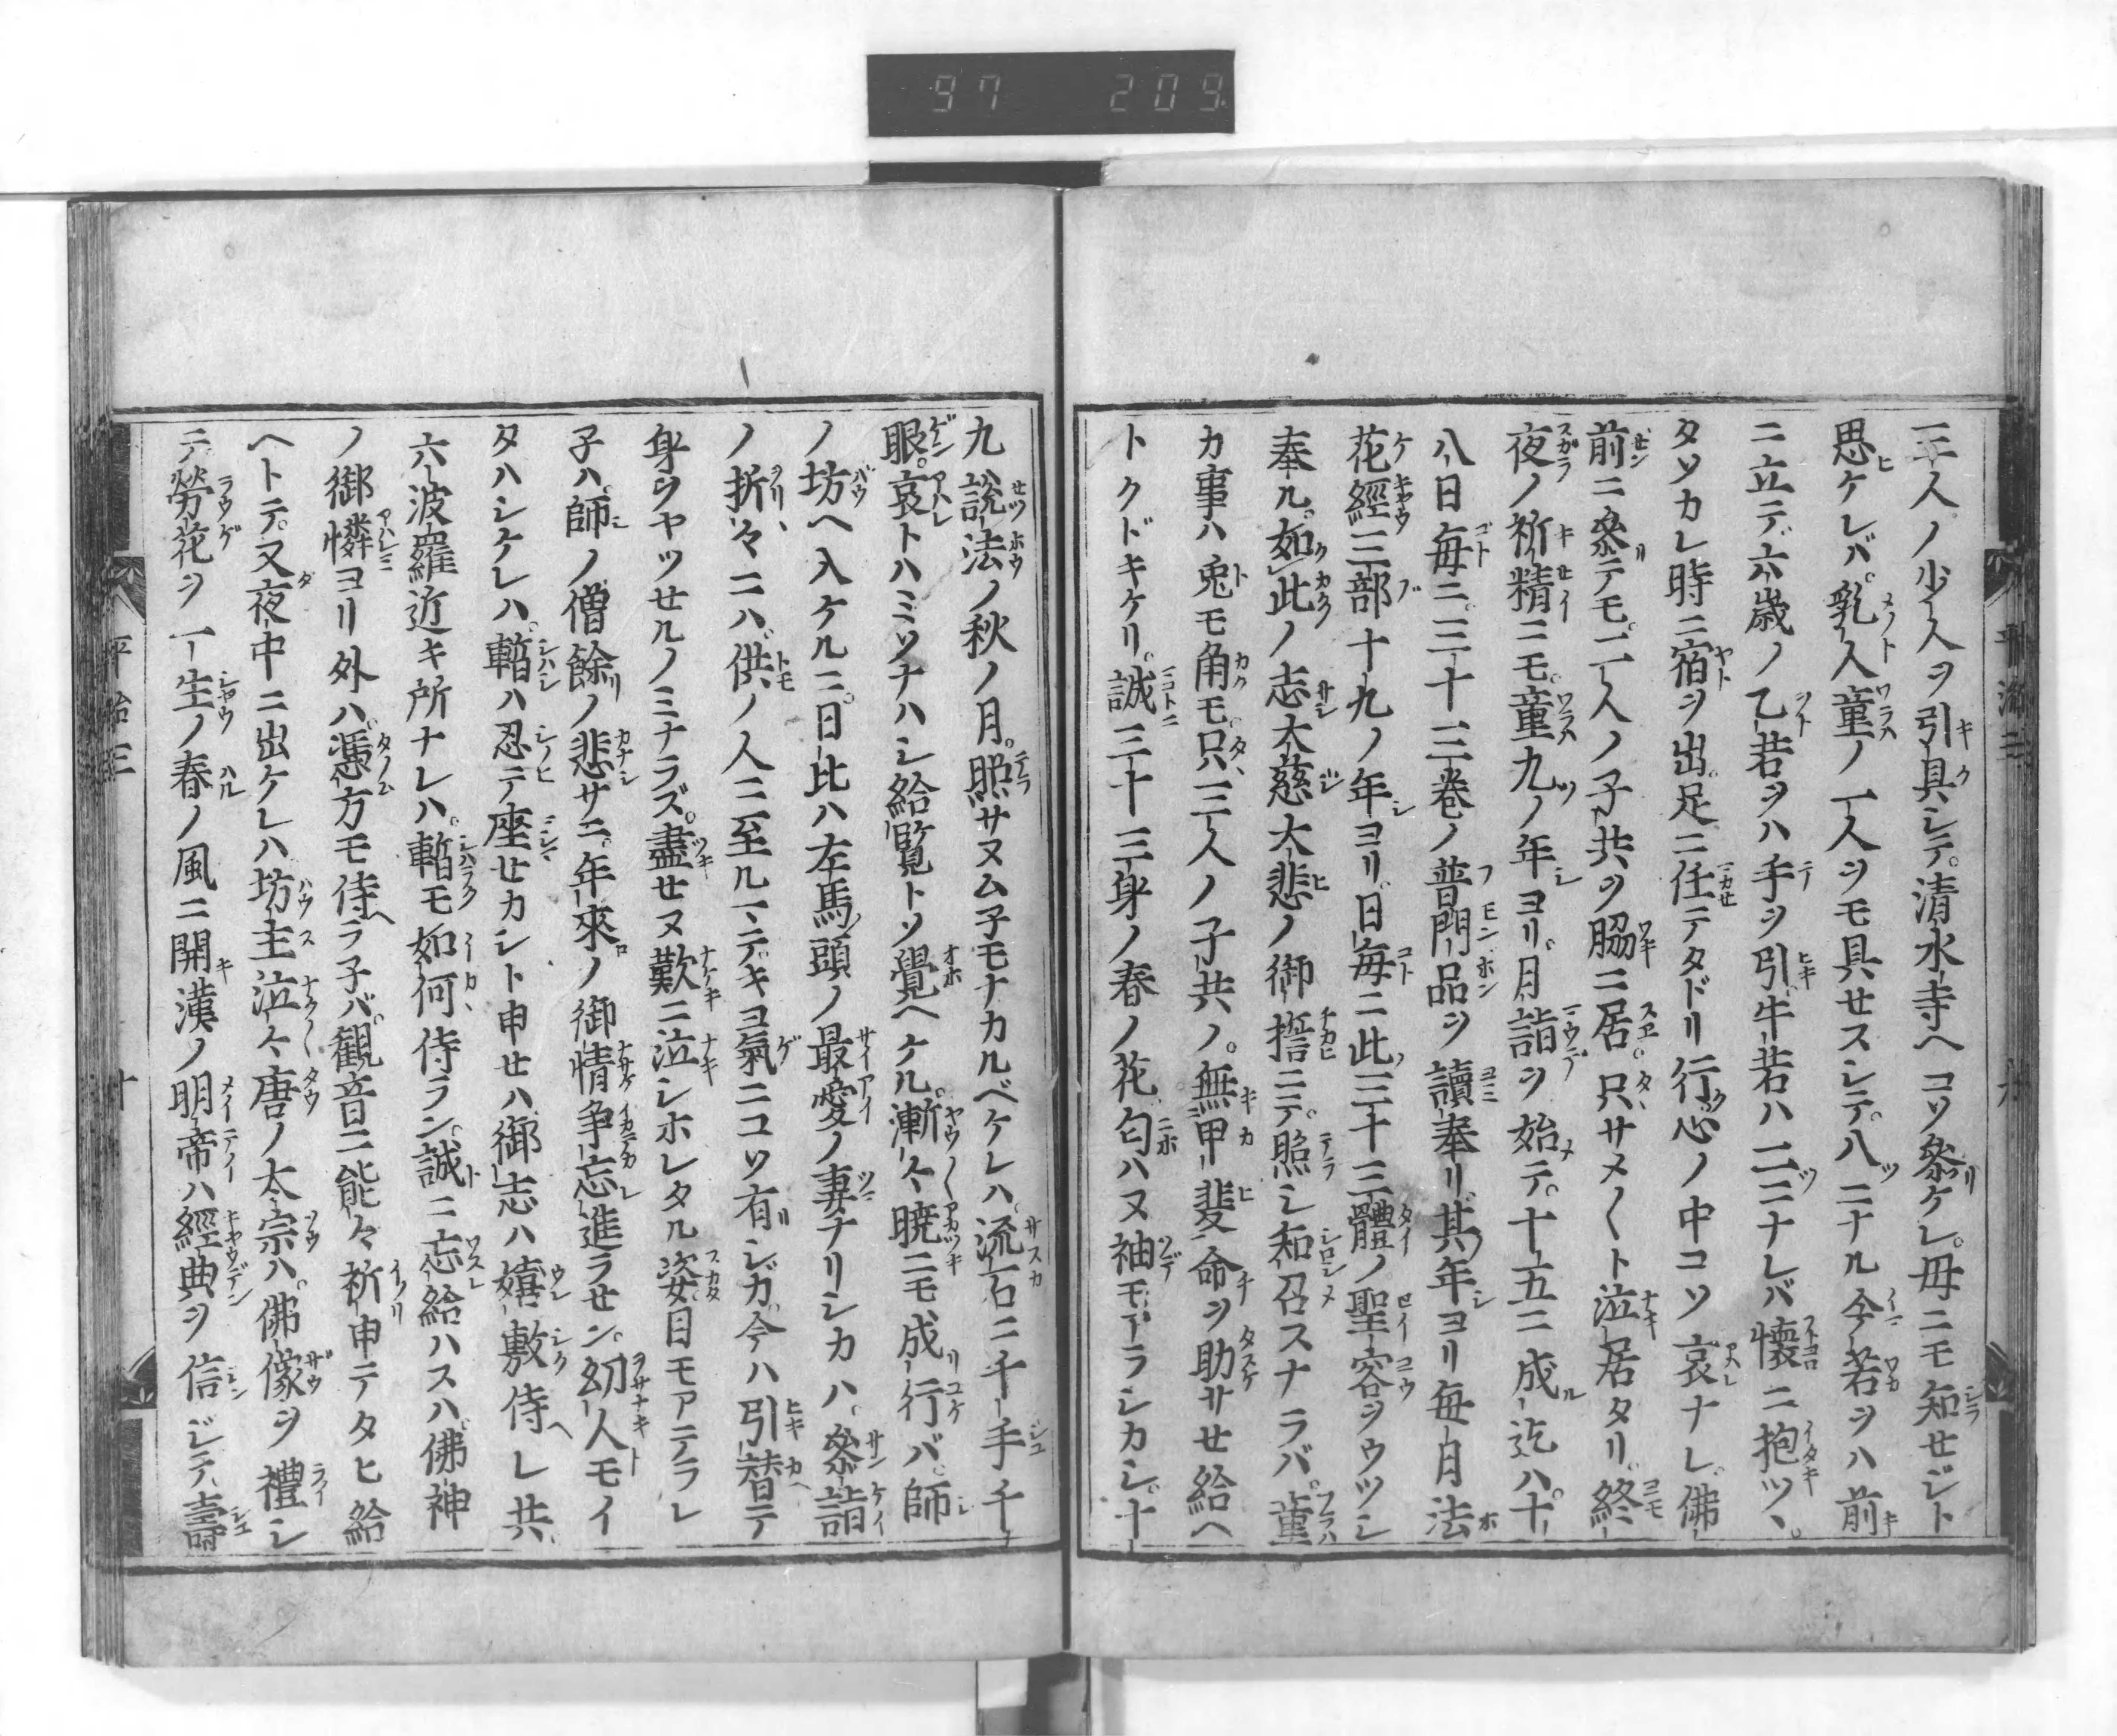 97 209
三人ノ少人ヲ引具シテ。清水寺ヘコソ參ケレ。母ニモ知セジト
思ケレバ。乳人童ノ一人ヲモ具セスシテ。八ニナル今若ヲハ前
ニ立テ。六歳ノ乙若ヲハ手ヲ引。牛若ハ二ニナレバ懷ニ抱ツヽ。
タソカレ時ニ宿ヲ出。足ニ任テタドリ行心ノ中コソ哀ナレ。佛
前ニ參テモ。二人ノ子共ヲ脇ニ居。只サメ〱ト泣居タリ。終
夜ノ祈精ニモ。童九ノ年ヨリ。月詣ヲ始テ。十五ニ成迄ハ。十
八日毎ニ。三十三巻ノ普門品ヲ讀奉リ。其年ヨリ毎月法
花經三部十九ノ年ヨリ。日毎ニ此三十三體ノ聖容ヲウツシ
奉ル。如此ノ志大慈大悲ノ御誓ニテ。照シ知召スナラバ。童
カ事ハ兎モ角モ。只三人ノ子共ノ。無甲斐命ヲ助サセ給ヘ
トクドキケリ。誠三十三身ノ春ノ花匂ハヌ袖モアラシカシ。十
九説法ノ秋ノ月。照サヌム子モナカルベケレハ。流石ニ千手千
眼。哀トハミソナハシ給覧トソ覺ヘケル。漸々曉ニモ成行バ。師
ノ坊ヘ入ケルニ。日比ハ左馬頭ノ最愛ノ妻ナリシカハ。參詣
ノ折々ニハ。供ノ人ニ至ルマテキヨ氣ニコソ有シガ。今ハ引替テ
身ヲヤツセルノミナラズ。盡セヌ歎ニ泣シホレタル姿目モアテラレ
子ハ。師ノ僧餘ノ悲サニ。年來ノ御情爭忘進ラセン。幼人モイ
タハシケレハ。暫ハ忍テ座セカシト申セハ。御志ハ嬉敷侍レ共。
六波羅近キ所ナレハ。暫モ如何侍ラン。誠ニ忘給ハスハ。佛神
ノ御憐ヨリ外ハ。憑方モ侍ラ子バ。観音ニ能々祈申テタヒ給
ヘトテ。又夜中ニ出ケレハ坊主泣々唐ノ太宗ハ。佛像ヲ禮シ
テ。勞花ヲ一生ノ春ノ風ニ開。漢ノ明帝ハ經典ヲ信ジテ。壽
平治三
十